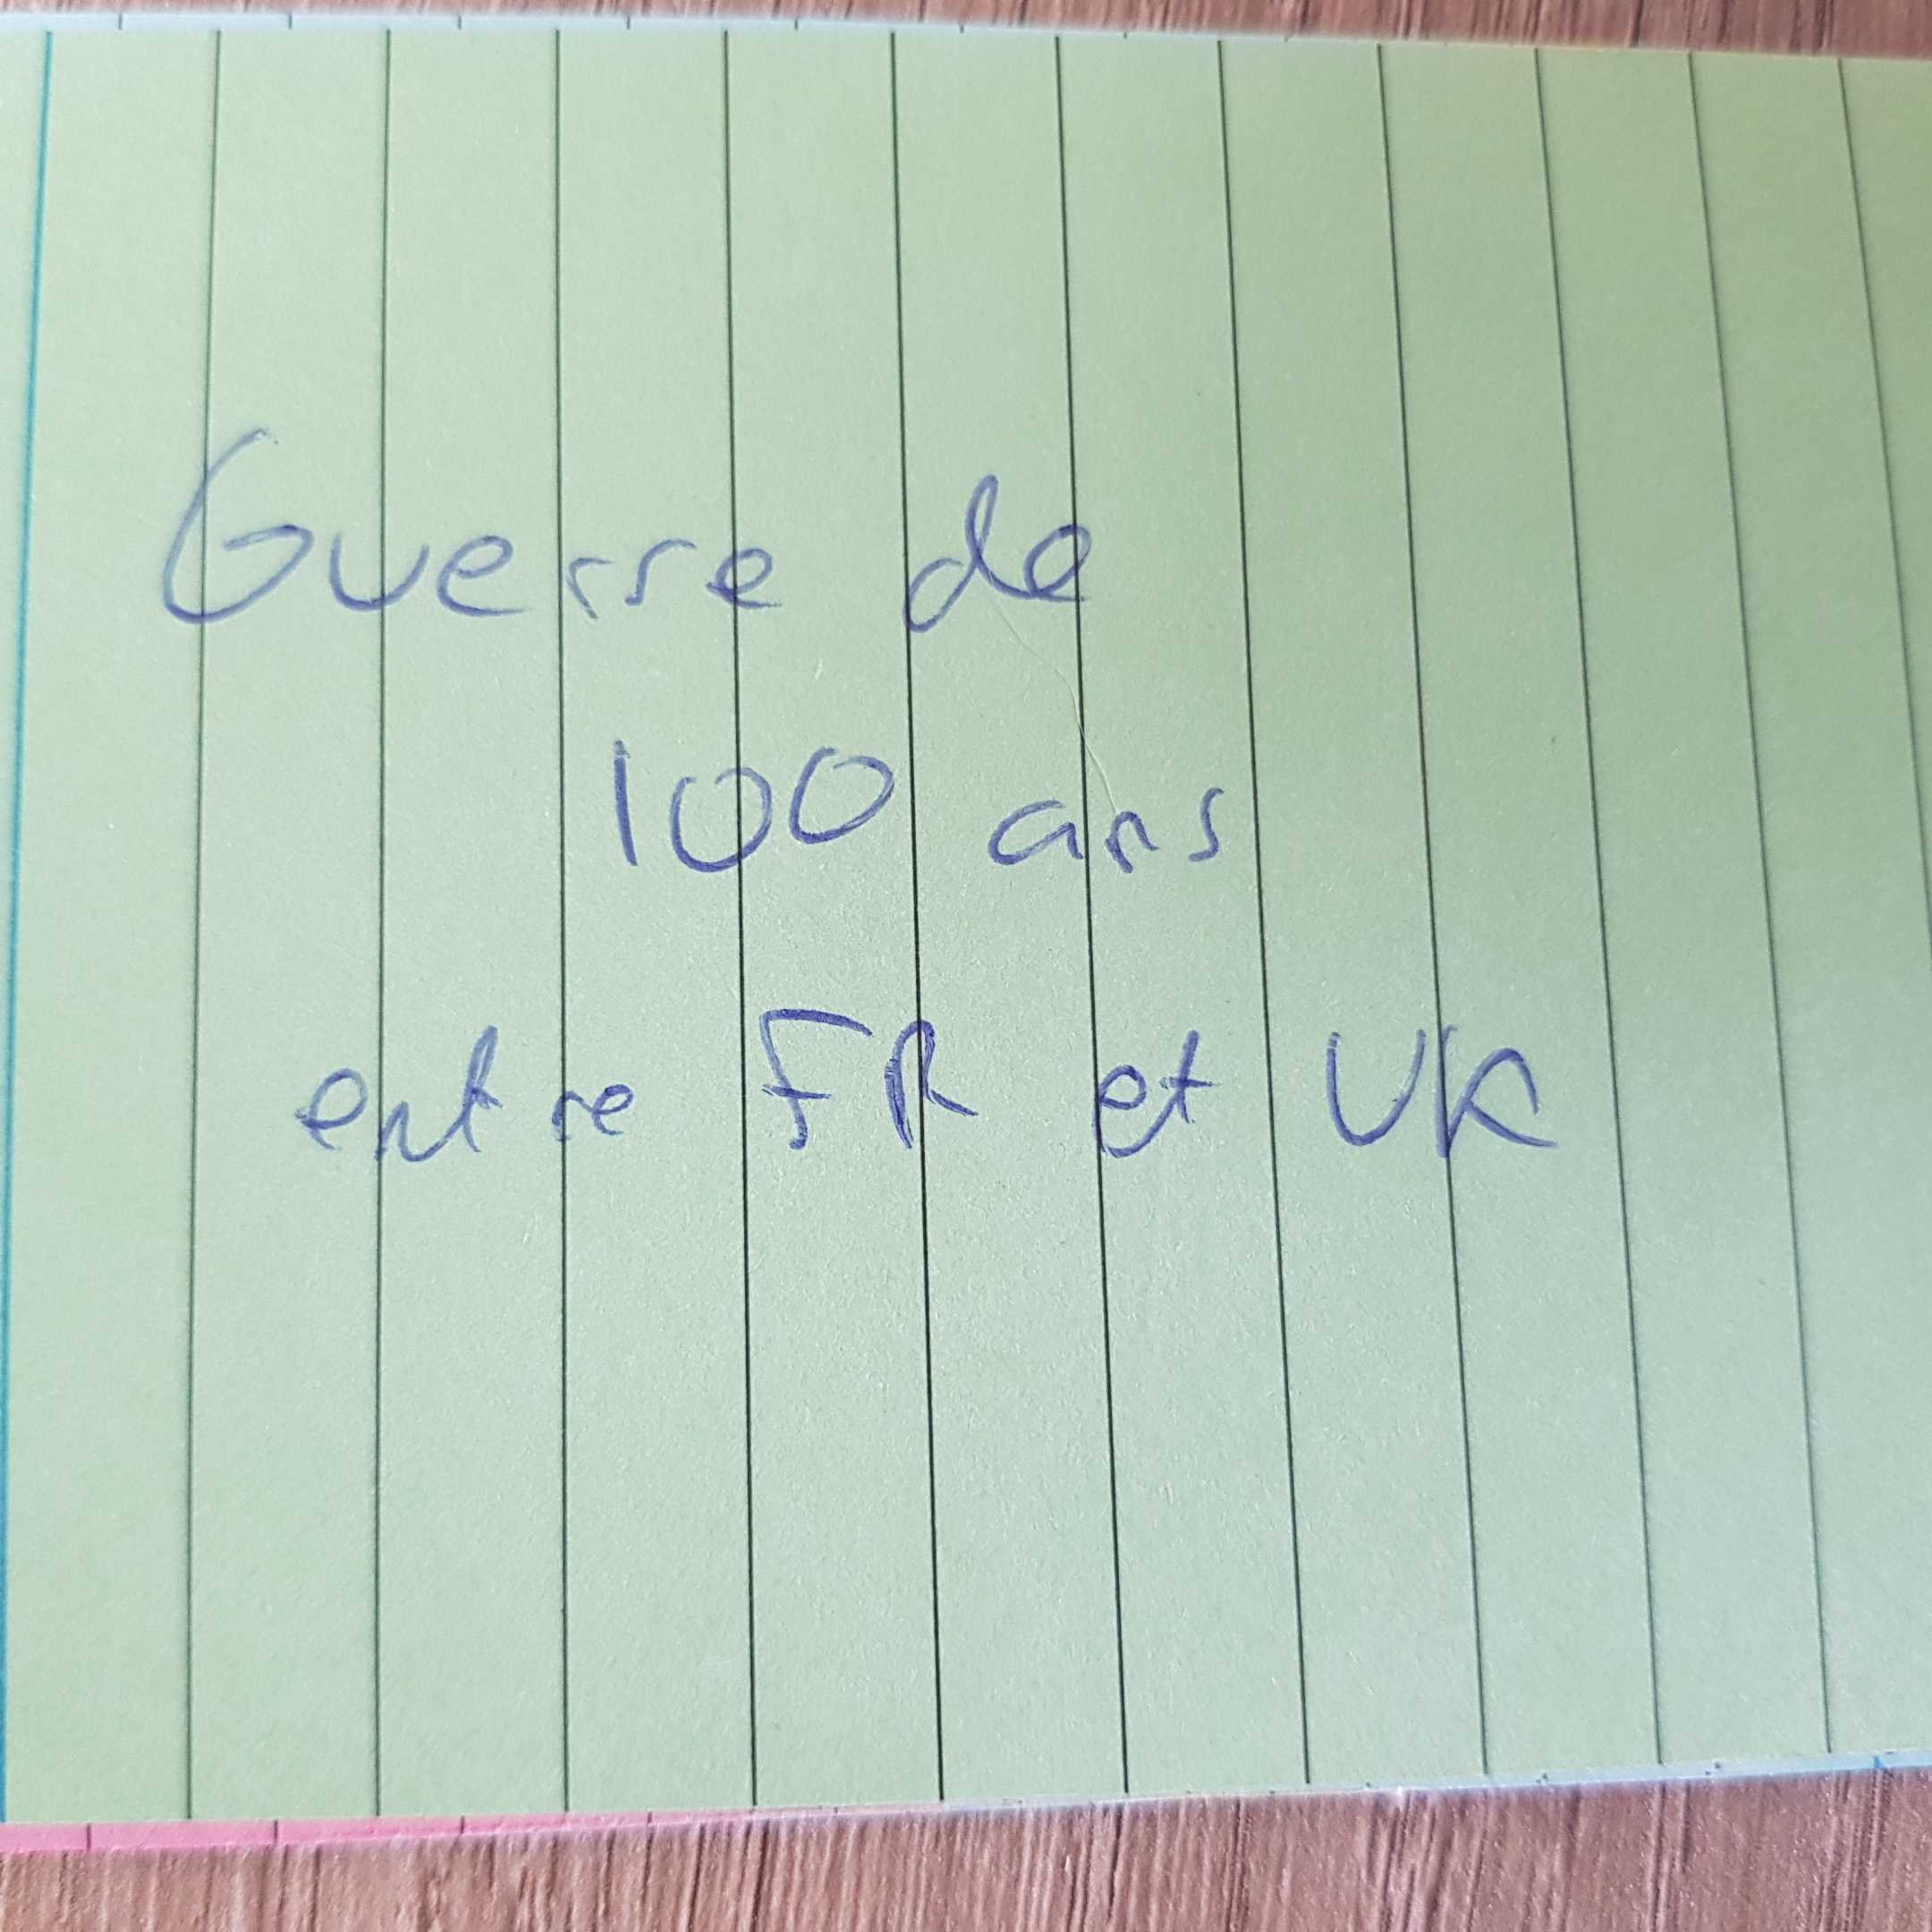 Guerre de
100 ans
entre FR et UK